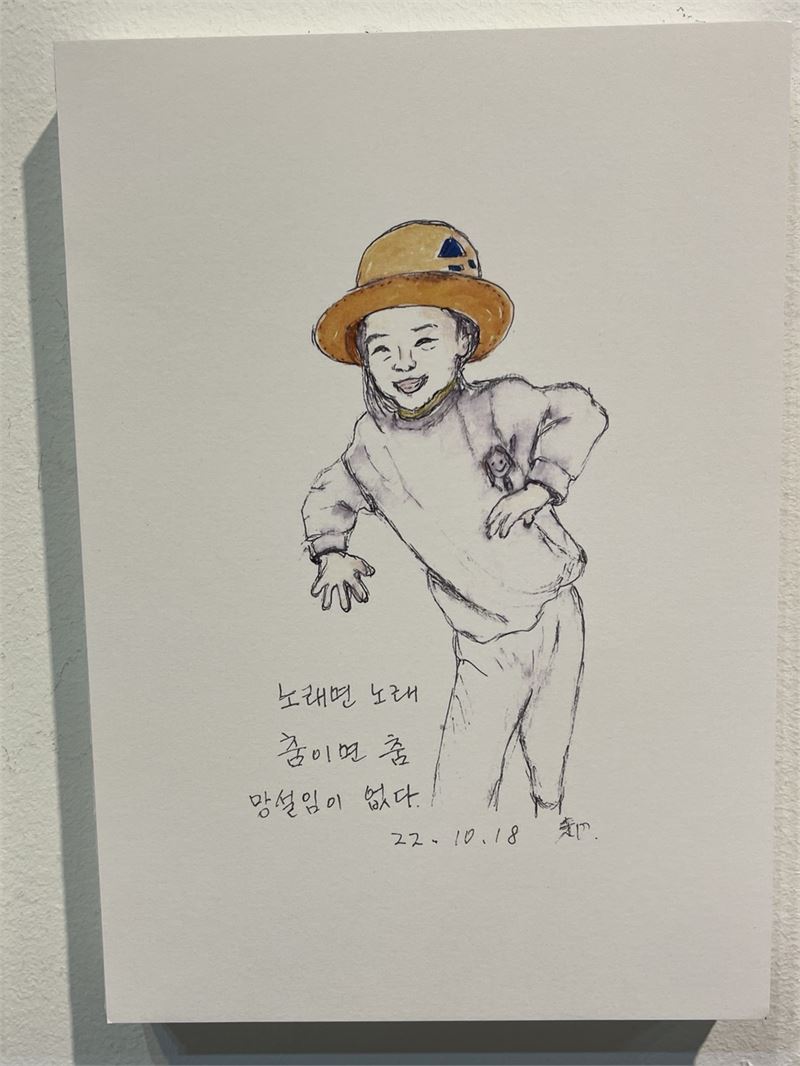 노래면 노래
춤이면 춤
망설임이 없다.
22.10.18